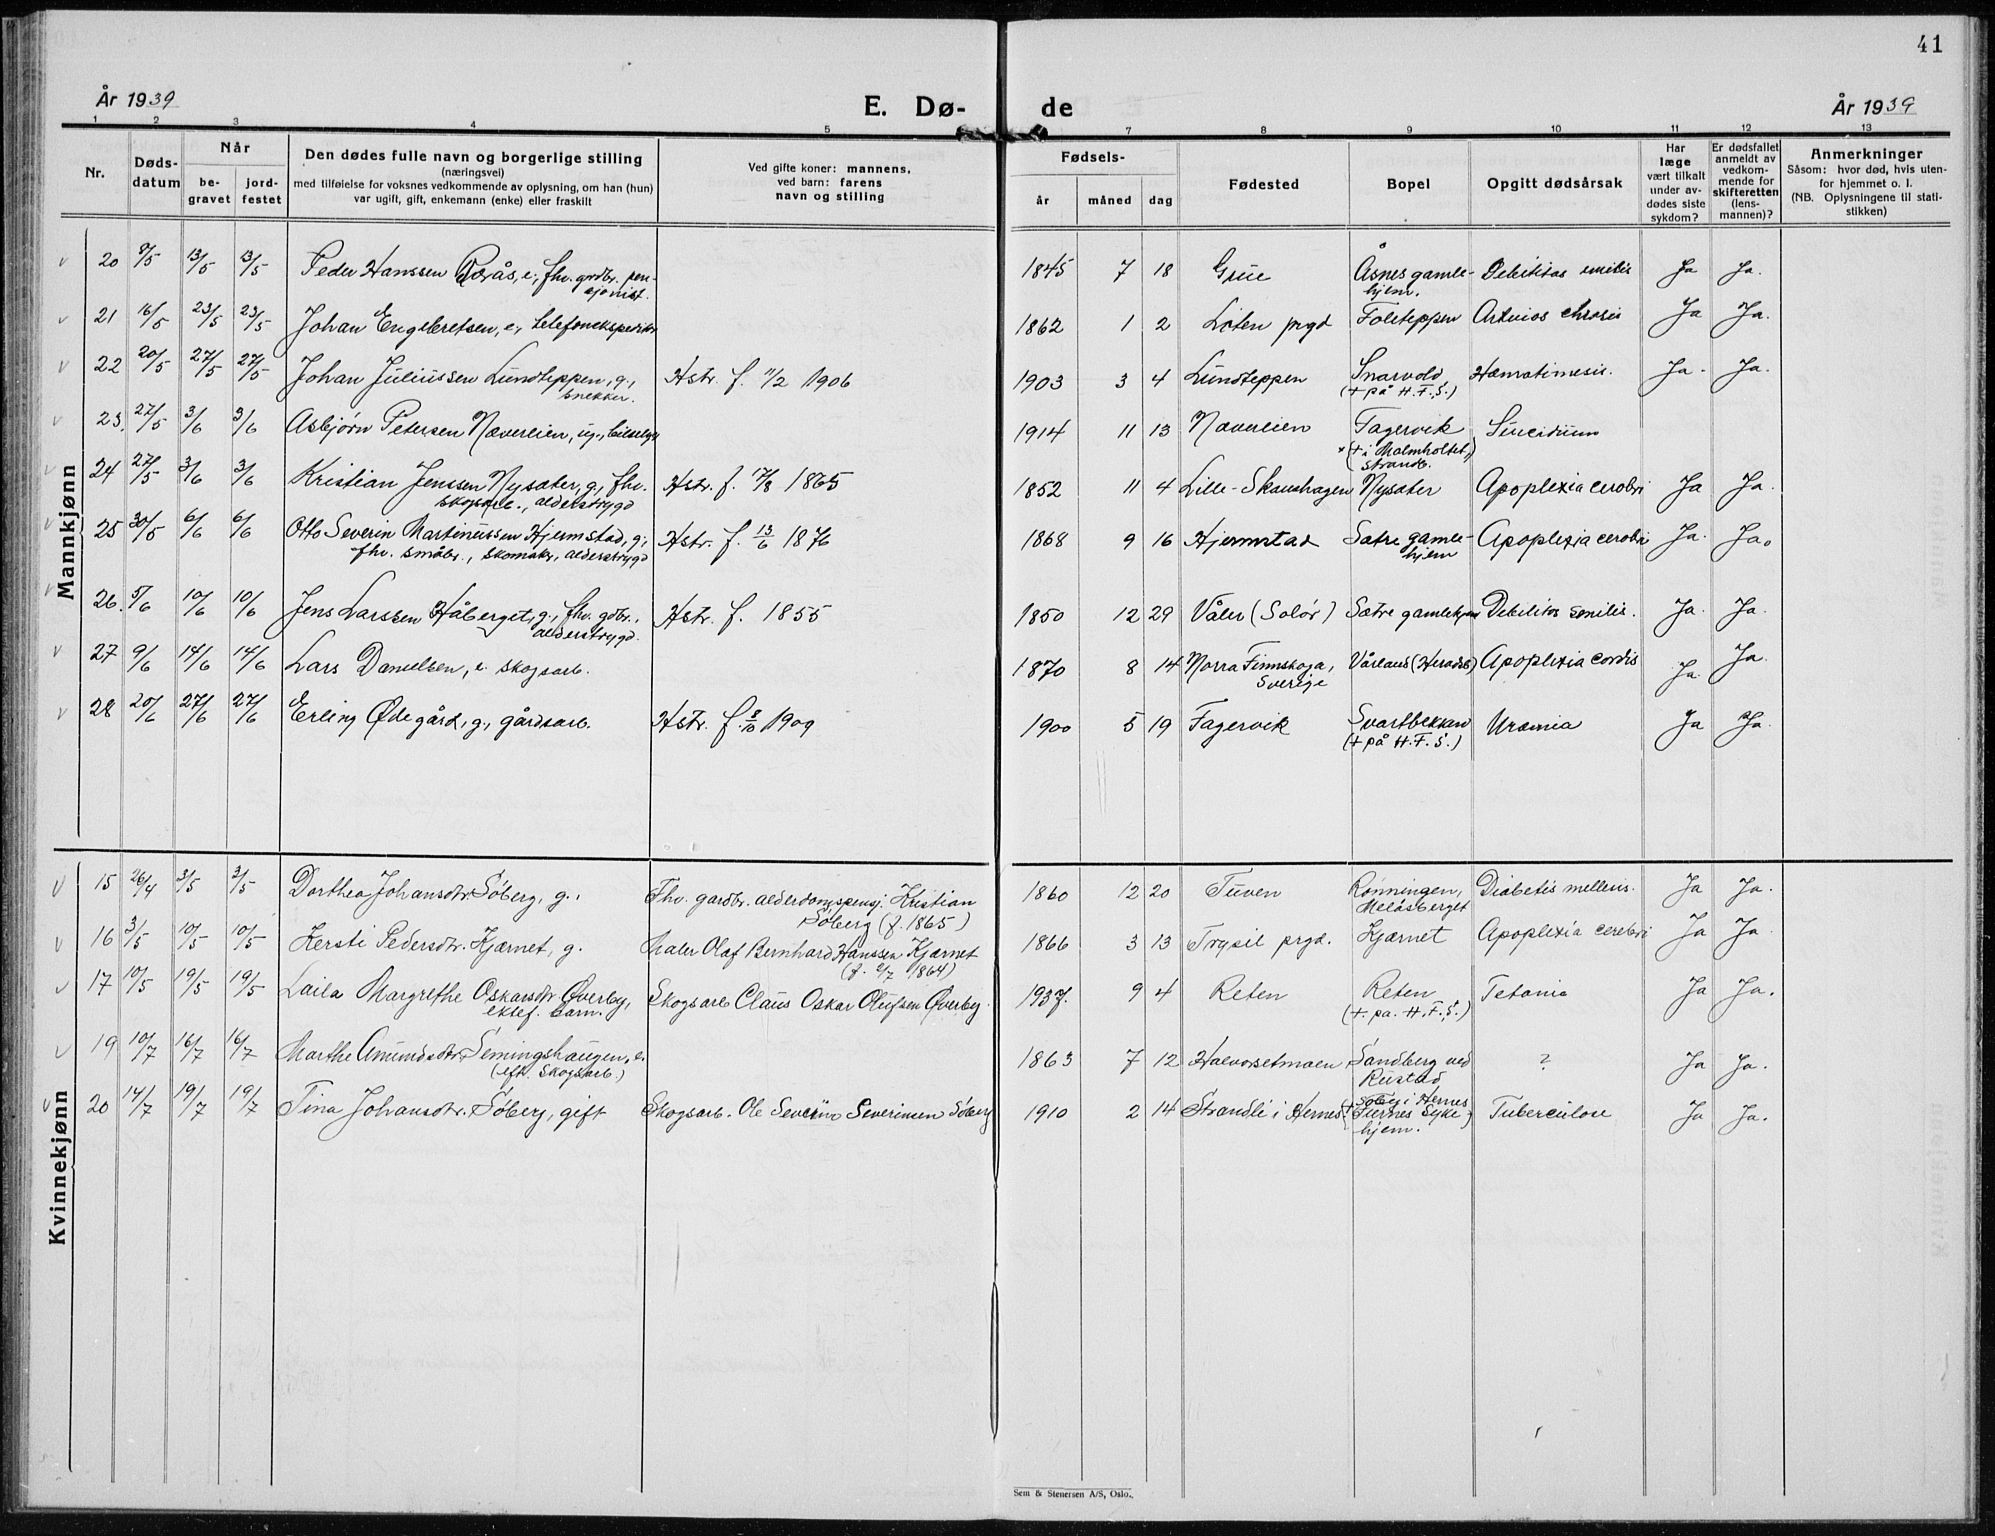 41
År 1939
E. Dø-
de
År 1939
1 2 3 4 5 7 8 9 10 11 12 13
Nr.
Døds-
datum
Når
be-
gravet
jord-
festet
Den dødes fulle navn og borgerlige stilling
(næringsvei)
med tilføielse for voksnes vedkommende av oplysning, om han (hun)
var ugift, gift, enkemann (enke) eller fraskilt
Ved gifte koner: mannens,
ved barn: farens
navn og stilling
Fødsels-
år måned dag
Fødested
Bopel
Opgitt dødsårsak
Har
læge
vært tilkalt
under av-
dødes siste
sykdom?
Er dødsfallet
anmeldt av
vedkom-
mende for
skifteretten
(lens-
mannen)?
Anmerkninger
Såsom: hvor død, hvis uten-
for hjemmet o. l.
(NB. Oplysningene til stati-
stikken)
Mannkjønn
20 8/5 13/5 13/5 Peder Hanssen Rørås, e., fhv. grdbr. pen-
sjonist. 1845 7 18 Grue Åsnes gamle-
hjem. Debilitas senilis Ja Ja.
21 16/5 23/5 23/5 Johan Engebretsen, e., telefonekspeditør 1862 1 2 Løten prgd Foleteppen Ja Ja.
22 20/5 27/5 27/5 Johan Juliussen Lundteppen, g.,
snekker. Hstr. f. 11/2 1906 1903 3 4 Lundteppen Snarvold
(+ på H.F.S.) Hæmatimesis. Ja. Ja.
23. 27/5 3/6 3/6 Asbjørn Petersen Næverlien, ug., 1914 11 13 Næverlien Fagervik
(+ i Malmholtet,
strandb. Suicidium
24 27/5 3/6 3/6 Kristian Jenssen Nysæter, g., fhv.
skogsarb., alderstrygd Hstr. f. 17/8 1865 1852 11 4 Lille-Skaushagen Nysæter Apoplexia cerebri Ja Ja.
25 30/5 6/6 6/6 Otto Severin Martinussen Hjermstad, g.,
fhv. småbr., skomaker, alderstrygd Hstr. f. 13/6 1876 1868 9 16 Hjermstad Sætre gamle-
hjem Apoplexia cerebri Ja. Ja.
26. 5/6 10/6 10/6 Jens Larssen Håberget, g., fhv. gdbr.,
alderstrygd. Hstr. f. 1855 1850 12 29 Våler (Solør) Sætre gamlehjem Debilitas senilis. Ja. Ja.
27 9/6 14/6 14/6 Lars Danielsen, e. skogsarb. 1870 8 14 Norra Finnskoga,
Sverige Vårlaus (Heradsb) Apoplexia cordis Ja. Ja.
28 20/6 27/6 27/6 Erling Ødegård, g., gårdsarb. Hstr. f. 8/10 1909 1900 5 19 Fagervik Svartbekken
(+ på H.F.S.) Uræmia Ja Ja.
Kvinnekjønn
15 26/4 3/5 3/5 Dorthea Johansdtr. Søberg, g., Fhv. gardbr. alderdomspensj. Kristian
Søberg (f. 1865) 1860 12 20 Tuven Rønningen,
Melåsberget Diabetis mellitus. Ja Ja.
16 3/5 10/5 10/5 Kersti Pedersdtr. Kjærnet, g. Maler Olaf Bernhard Hanssen Kjærnet
(f. 2/7 1864) 1866 3 13 Trysil prgd. Kjærnet Apoplexia cerebri Ja Ja.
17 10/5 19/5 19/5 Laila Margrethe Oskarsdtr. Øverby,
ektef. barn. Skogsarb Claus Oskar Olufsen Øverby. 1937. 9 4 Reten Reten
(+ på H.F.S.) Tetania Ja Ja.
19 10/7 16/7 16/7 Marthe Amundsdtr. Semingshaugen, e.
(eft. Skogsarb.) 1863 7 12 Halvorsetmoen Sandberg ved
Rustad ? Ja Ja.
20 14/7 19/7 19/7 Tina Johansdtr. Søberg, gift Skogsarb. Ole Severin Severinsen Søberg 1910 2 14 Strandli i Hernes Søberg i Hernes
(+ Furnes Syke-
hjem.) Tuberculose Ja Ja.
Sem & Stenersen A/S, Oslo.